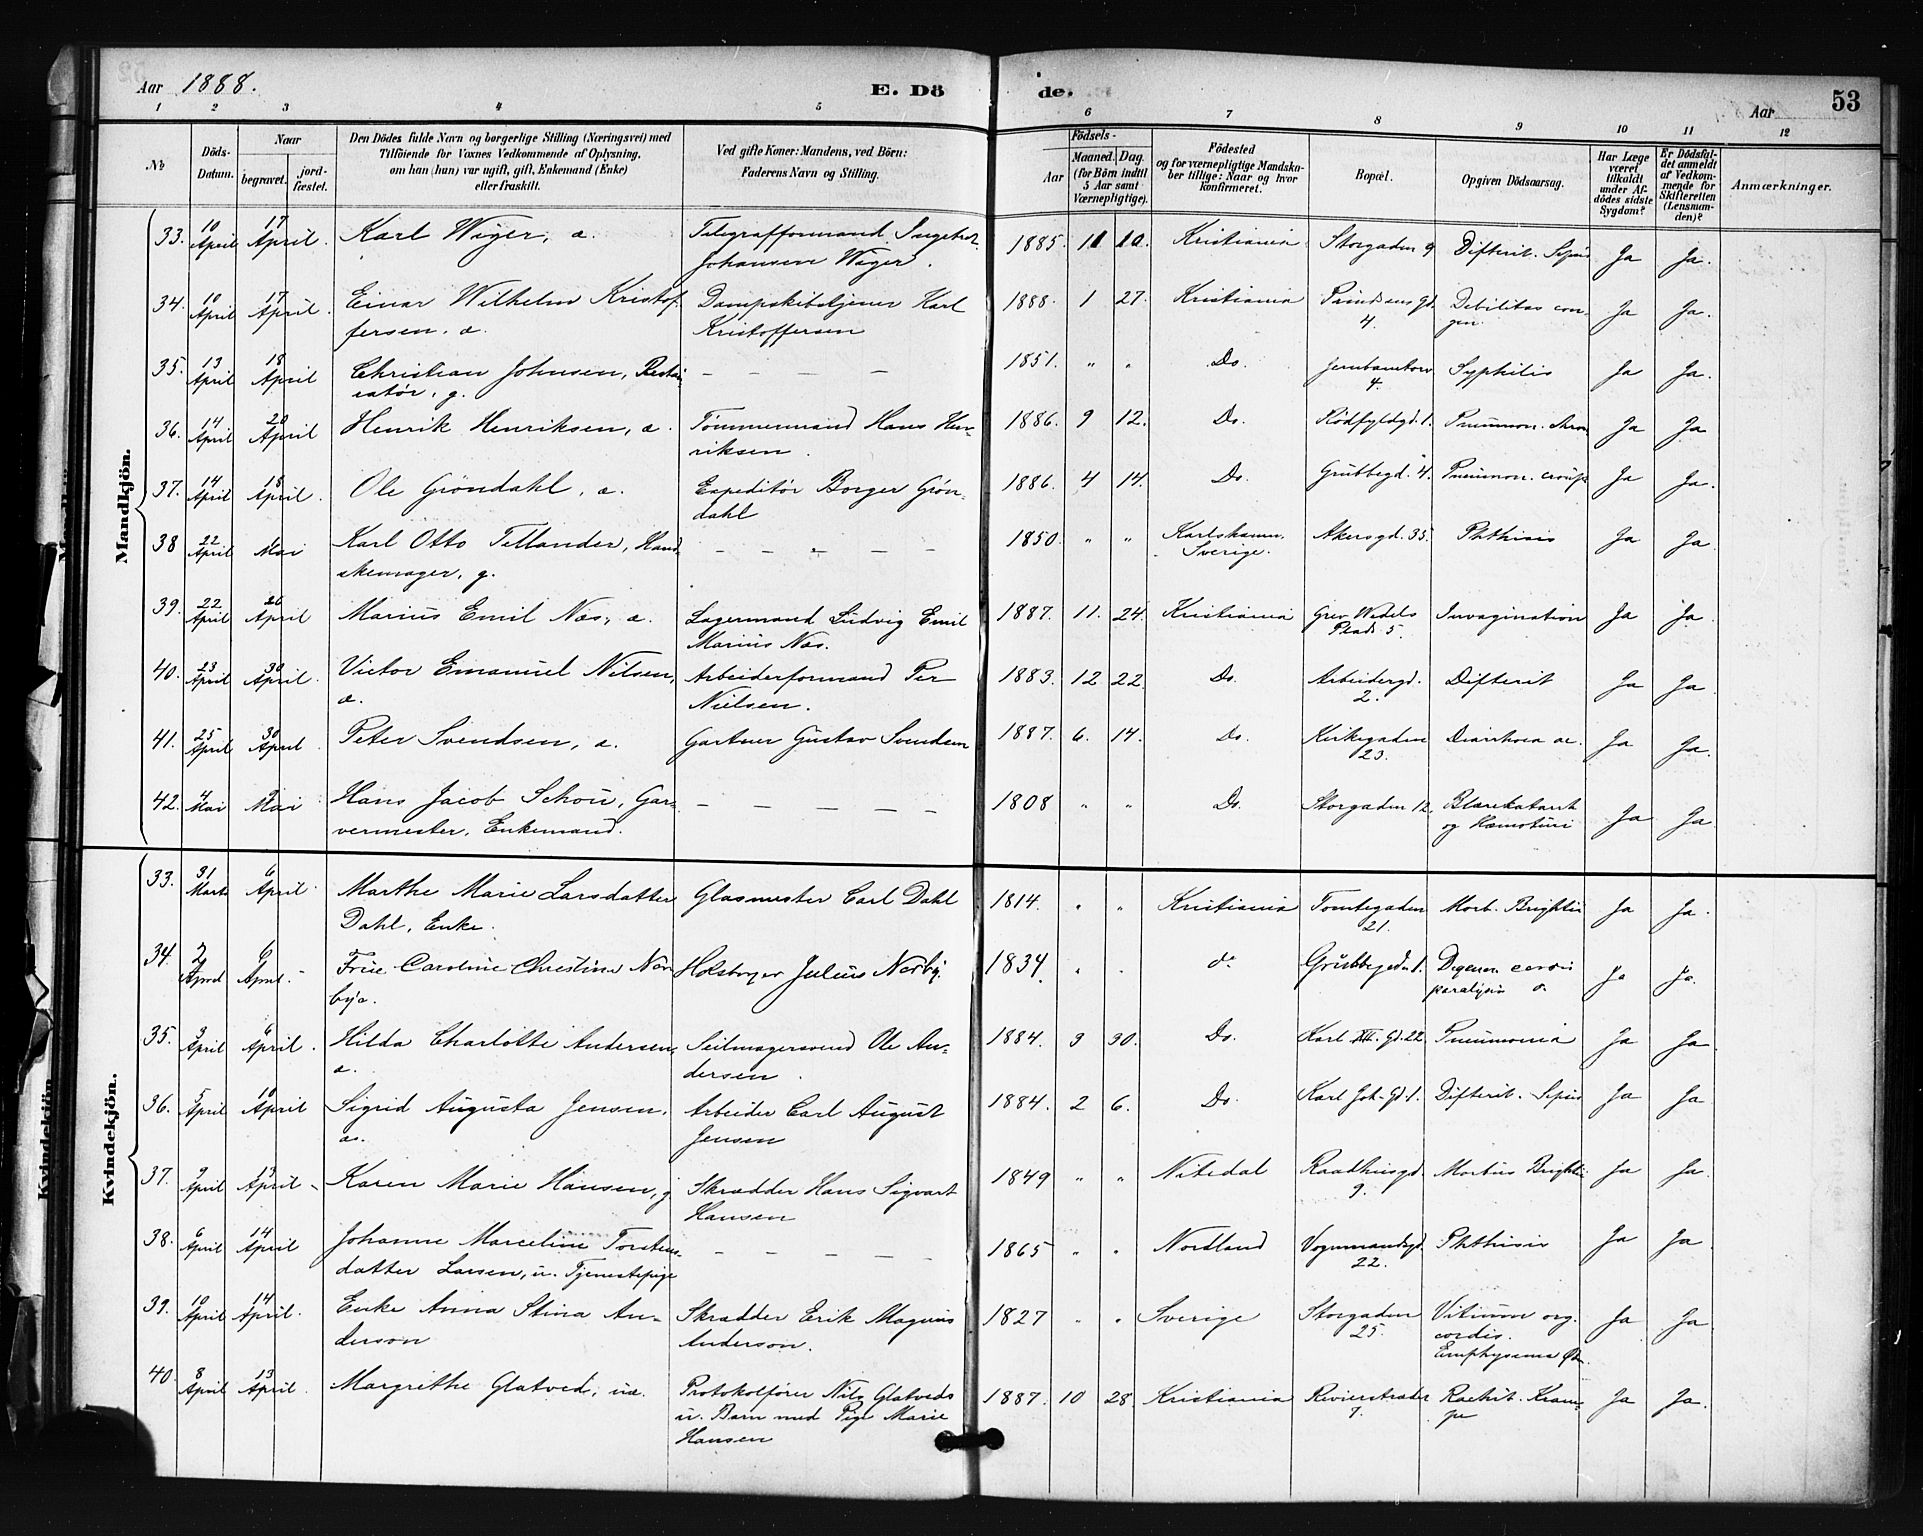 Aar 1888. E. Döde. Aar 53
1 2 3 4 5 6 7 8 9 10 11 12
No. Döds-Datum. Naar begravet. jordfæstet.
Den Dödes fulde Navn og borgerlige Stilling (Næringsvei) med
Tilföiende for Voxnes Vedkommende af Oplysning,
om han (hun) var ugift, gift, Enkemand (Enke)
eller fraskilt.
Ved gifte Koner: Mandens, ved Börn:
Faderens Navn og Stilling.
Födsels-
Aar Maaned. Dag.
(for Börn indtil
5 Aar samt
Værnepligtige).
Födested
og for værnepligtige Mandska-
ber tillige: Naar og hvor
konfirmeret.
Bopæl.
Opgiven Dödsaarsag.
Har Læge
været
tilkaldt
under Af-
dödes sidste
Sygdom?
Er Dödsfal-
det anmeldt
af Vedkom-
mende for
Skifteretten
(Lensman-
den)?
Anmærkninger.
Mandkjön.
33. 10 April 17 April. Karl Wiger, a. Telegrafformand Ingebret 1885. 11 10. Kristiania Storgaden 9 Difterit. Sepsis Ja Ja.
Johansen Wiger.
34. 10 April 17 April. Einar Wilhelm Kristof- Dampskibstjener Karl 1888. 1 27. Kristiania Debilitas con- Ja Ja.
fersen. a. Kristoffersen 4. gen.
35. 13 April 18 April Christian Johnsen, Restau- — — — — 1851. " " Do. Jernbanetorv Syphilis Ja Ja.
ratör, g. 4.
36. 14 April 20 April Henrik Henriksen, a. Tömmermand Hans Hen- 1886. 9 12. Do. Rödfyldgd. 1. Pneumon. Ja Ja
riksen.
37. 14 April 18 April. Ole Gröndahl, a. Expeditör Borger Grön- 1886. 4 14. Do. Grubbegd. 4. Pneumon. croup. Ja Ja.
dahl
38 22 April Mai Karl Otto Tellander, Hand- — — — — — 1850. " " Karlshamn, Akersgd. 35. Phthisis Ja Ja
skemager, g. Sverige.
39. 22 April 26 April Marius Emil Næs, a. Lagermand Ludvig Emil 1887. 11. 24. Kristiania Grev Wedels Invagination Ja Ja.
Marius Næs. Plads 5.
40. 23 April 30 April. Victor Emanuel Nilsen, Arbeiderformand Per 1883. 12 22. Do. Arbeidergd. Difterit Ja Ja.
a. Nielsen. 2.
41. 25 April 30 April Peter Svendsen, a. Gartner Gustav Svendsen 1887. 6. 14. Do. Kirkegaden Diarrhoea ac. Ja Ja.
23.
42. 4 Mai 9 Mai Hans Jacob Schou, Gar- — — — — — 1808 " " Do. Storgaden 12. Blærekatarrh Ja Ja.
vermester, Enkemand. og Hæmaturi
Kvindekjön.
33. 31 Marts 6 April. Marthe Marie Larsdatter Glasmester Carl Dahl 1814. " " Kristiania Tomtegaden Morb. Brightii Ja Ja.
Dahl, Enke. 21.
34. 2 April 6 April. Frue Caroline Christine Nør- Julius Nørby. 1834. " " do Grubbegaden 1. Degener. cordis Ja Ja.
by a. paralysis
35. 3 April 6 April. Hilda Charlotte Andersen, Seilmagersvend Ole An- 1884. 9 30. Do. Karl XII. Gd. 22. Pneumonia Ja Ja.
a. dersen.
36. 5 April 10 April Sigrid Augusta Jensen, Arbeider Carl August 1884. 2 6. Do. Karl Joh. Gd. 1. Difterit. Sepsis Ja Ja
a. Jensen
37. 9 April 13 April Karen Marie Hansen, g Skrædder Hans Sigvart 1849 " " Nitedal Raadhusgd. Morbus Brightii Ja Ja.
Hansen 9.
38. 6 April 14 April Johanne Marceline Torstens- — — — — — 1865 " " Nordland Vognmandsgd. Phthisis Ja Ja.
datter Larsen, u. Tjenestepige 22.
39. 10 April 14 April. Enke Anna Stina An- Skrædder Erik Magnus 1827 " " Sverige Storgaden Vitium org. Ja Ja
derson Anderson. 25. cordis.
Emphysema
40. 8 April 13 April. Margrethe Glatved, ua. Protokolförer Nils Glatveds 1887. 10 28 Kristiania Revierstrædet Rachit. Kram- Ja Ja.
u. Barn med Pige Marie 7. pe
Hansen